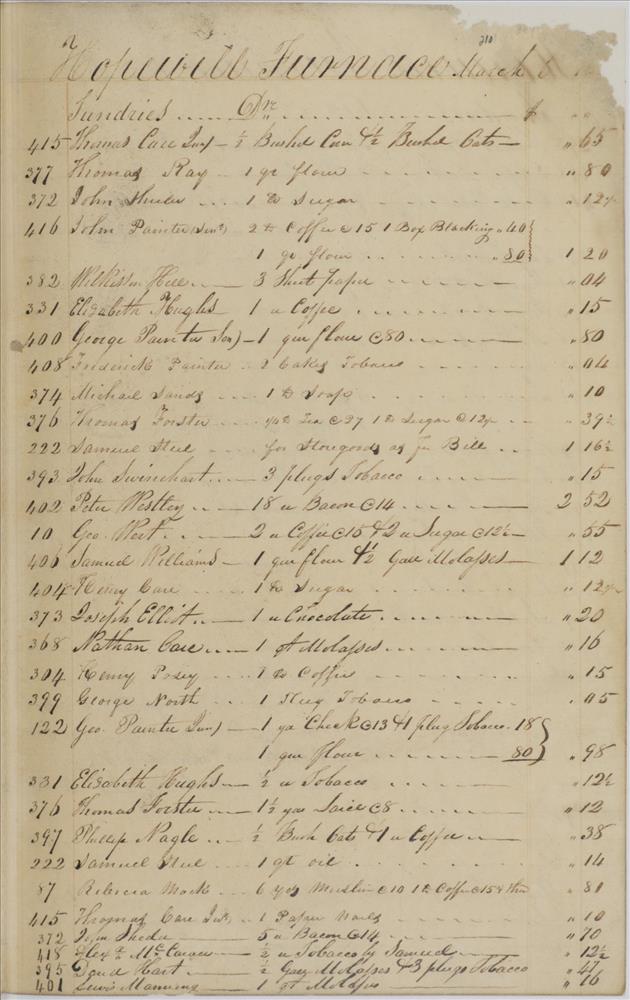 210
Hopewell Furnace March
Sundries ..... Dr. ............ $
415 Thomas Care Junr — ½ Bushel Corn & ½ Bushel Oats — " 65
377 Thomas Ray — 1 qr flour - - - - " 80
372 John Sheeler - - - 1 lb Sugar - - - - " 12½
416 John Painter (Senr) 2 lb Coffee @ 15 1 Box Blacking " 40
1 qr flour - - - - " 80 1 20
382 Wilkison Hill - - - 3 Sheet paper - - - - " 04
331 Elizabeth Hughs 1 " Coffee - - - - " 15
400 George Painter Son) — 1 qur flour @ 80 - - - - " 80
408 Frederick Painter - 2 Cakes Tobacco - - - - " 04
374 Michael Sands - - - 1 lb Soap - - - - " 10
376 Thomas Forster - - - ¼ lb Tea @ 97 1 lb Sugar @ 12½ - - " 39½
222 Samuel Steel - - - for Storegoods as Per Bill - - 1 16½
393 John Swinehart - - - 3 plugs Tobacco - - - - " 15
402 Peter Westley - - 18 " Bacon @ 14 - - - - 2 52
10 Geo. West - - - 2 " Coffee @ 15 & 2 " Sugar @ 12½ — " 55
406 Samuel Williams — 1 qur flour & ½ Gall Molasses — 1 12
404 Henry Care - - - 1 lb Sugar - - - - " 12½
373 Joseph Elliot - - - 1 " Chocolate - - - - " 20
368 Nathan Care - - - 1 qt Molasses - - - - " 16
304 Henry Posey - - - 1 lb Coffee - - - - " 15
399 George North - - - 1 Plug Tobacco - - - - " 05
122 Geo. Painter Junr) — 1 yd Check @ 13 & 1 plug Tobacco . 18
1 qur flour - - - - 80 " 98
331 Elizabeth Hughs — ½ " Tobacco - - - - " 12½
376 Thomas Forster - - - 1½ yds Laice @ 8 - - - - " 12
397 Phillip Nagle - - ½ Bush Oats & 1 " Coffee - - " 38
222 Samuel Steel - - - 1 qt oil - - - - " 14
87 Rebecca Mock - - - 6 yds Muslin @ 10 1 lb Coffee @ 15 & " 81
415 Thomas Care Junr - 1 Paper Nails - - - - " 10
372 John Sheeler — 5 " Bacon @ 14 - - - - " 70
418 Alexr Mc — ½ " Tobacco by Samuel — " 12½
395 David Hart — ½ Gall Molasses & 3 plugs Tobacco " 47
401 Lewis Manning — 1 qt Molasses - - - " 16